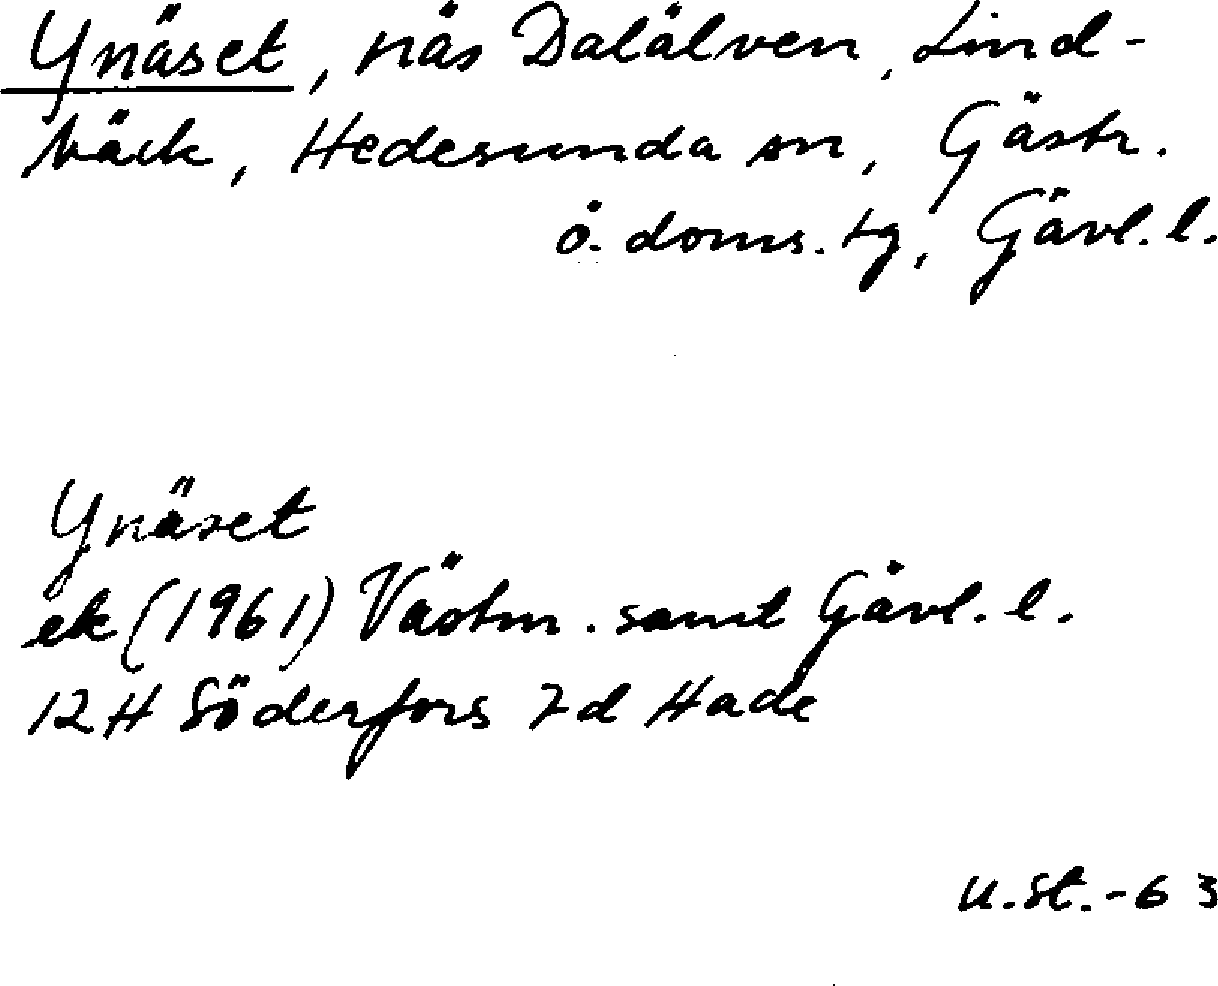 Ynäset, näs Dalälven, Lind-
bäck, Hedesunda sn, Gästr.
ö. doms. tg, Gävl. l.
Ynäset
ek (1961) Västm. samt Gävl. l.
12H Söderfors 7d Hade
U.St.-63